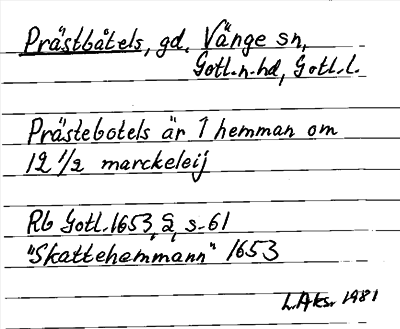 Prästbåtels, gd, Vänge sn,
Gotl.n.hd, Gotl.l.
Prästebotels är 1 hemman om
12 1/2 marckeleij
Rb Gotl.1653, 2, s-61
"Skattehemmann" 1653
L.Aks. 1981